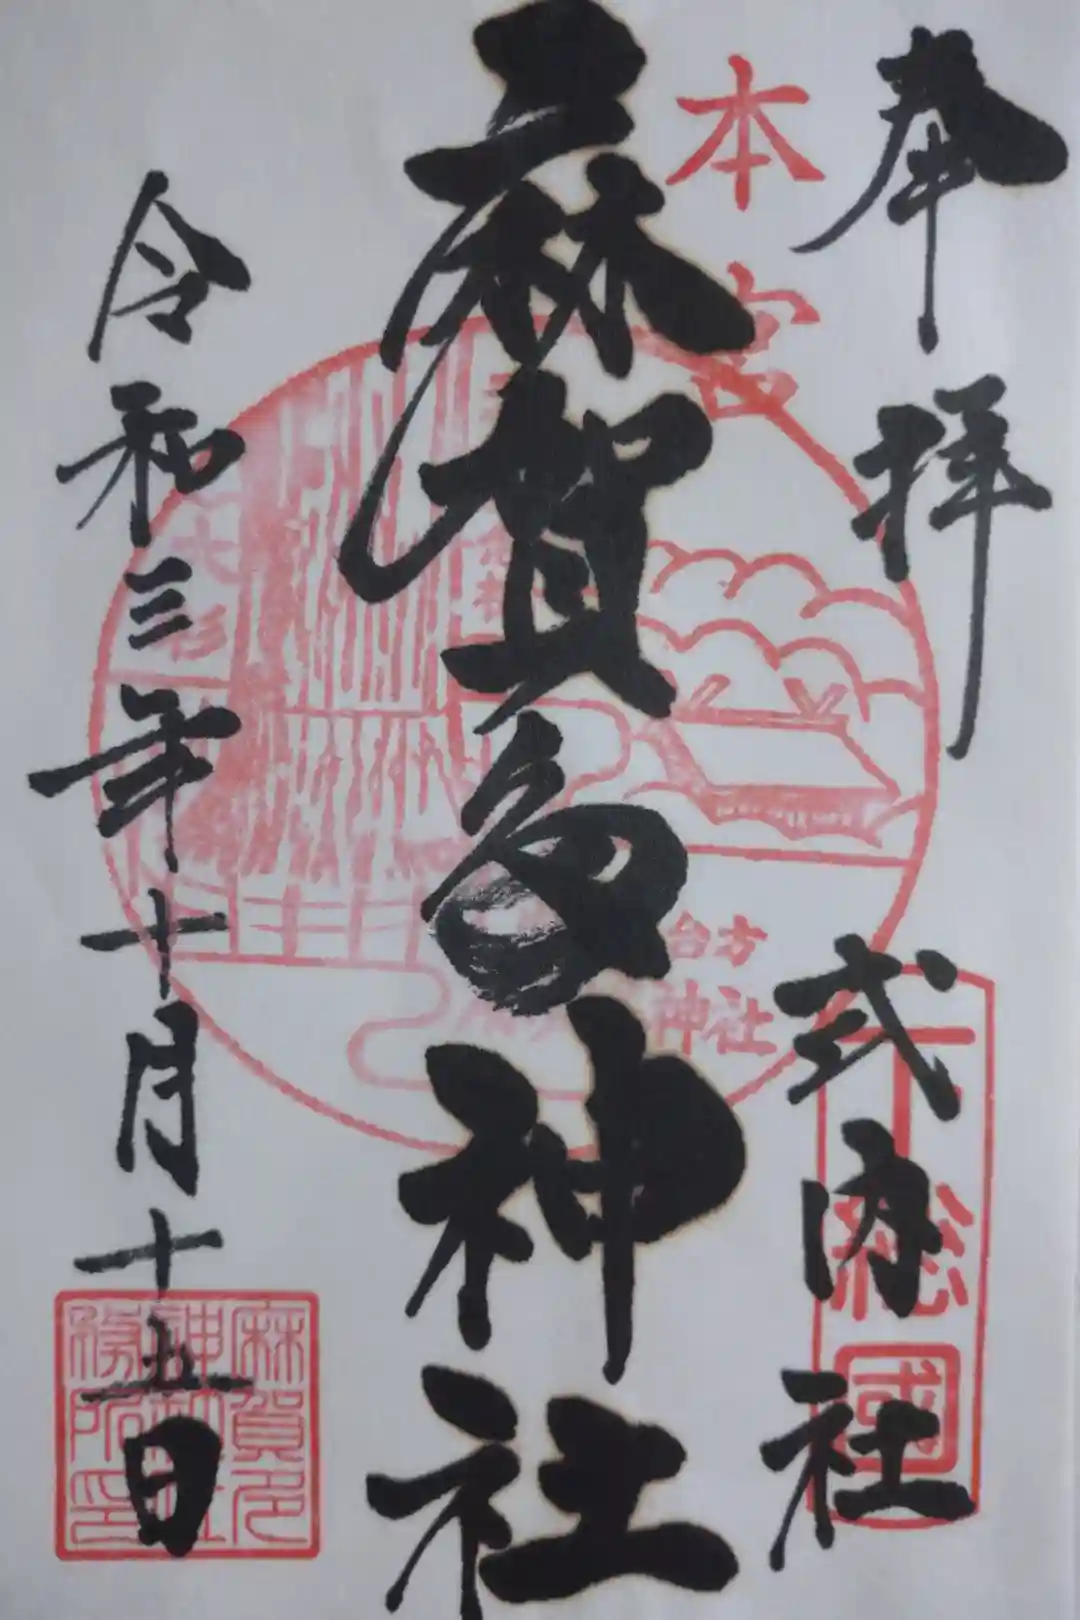 奉拝
式内社
下総國
本宮
麻賀多神社
台方
神社
大杉
令和三年十月十五日
麻賀多
神社
務所印